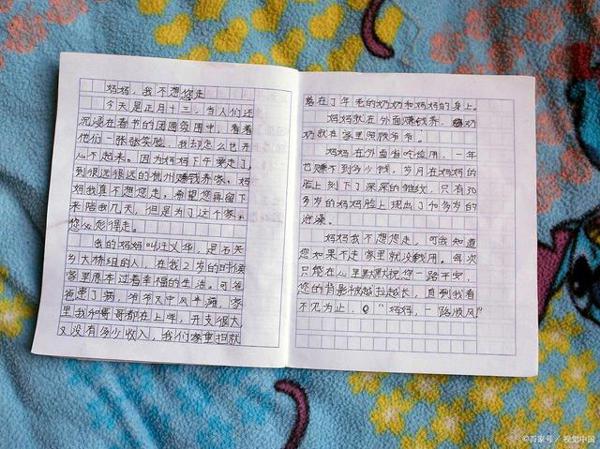 妈妈，我不想您走
今天是正月十三，当人们还
沉浸在春节的团圆氛围中，看着
他们一张张笑脸，我却怎么也开
心不起来。因为妈妈下午要走了，
到很远很远的杭州赚钱养家。妈
妈我真不想您走。希望您再留下
来陪我几天，但是为了这个家。
您必须得走。
我的妈妈叫汪义华，是石关
乡大林组的人，在我2岁的时候
家里原本过着幸福的生活。可爸
爸患了病，爷爷又中风半瘫，家里
我和哥哥都在上学，开支很大
又没有多少收入，我们家重担就
落在了年老的奶奶和妈妈的身上。
妈妈就在外面赚钱养，奶
奶就在家里照顾爷爷。
妈妈在外面省吃俭用，一年
也赚不到多少钱，岁月在妈妈的
脸上刻下了深深的皱纹，只有30
多岁的妈妈脸上现出了40多岁的
沧桑。
妈妈我不想您走，可我知道
您如果不走家里就没钱用。每次
只能在心里默默祝您一路平安，
您的背影被越拉越长，直到我看
不见为止，“妈妈，一路顺风”
©百家号/视觉中国